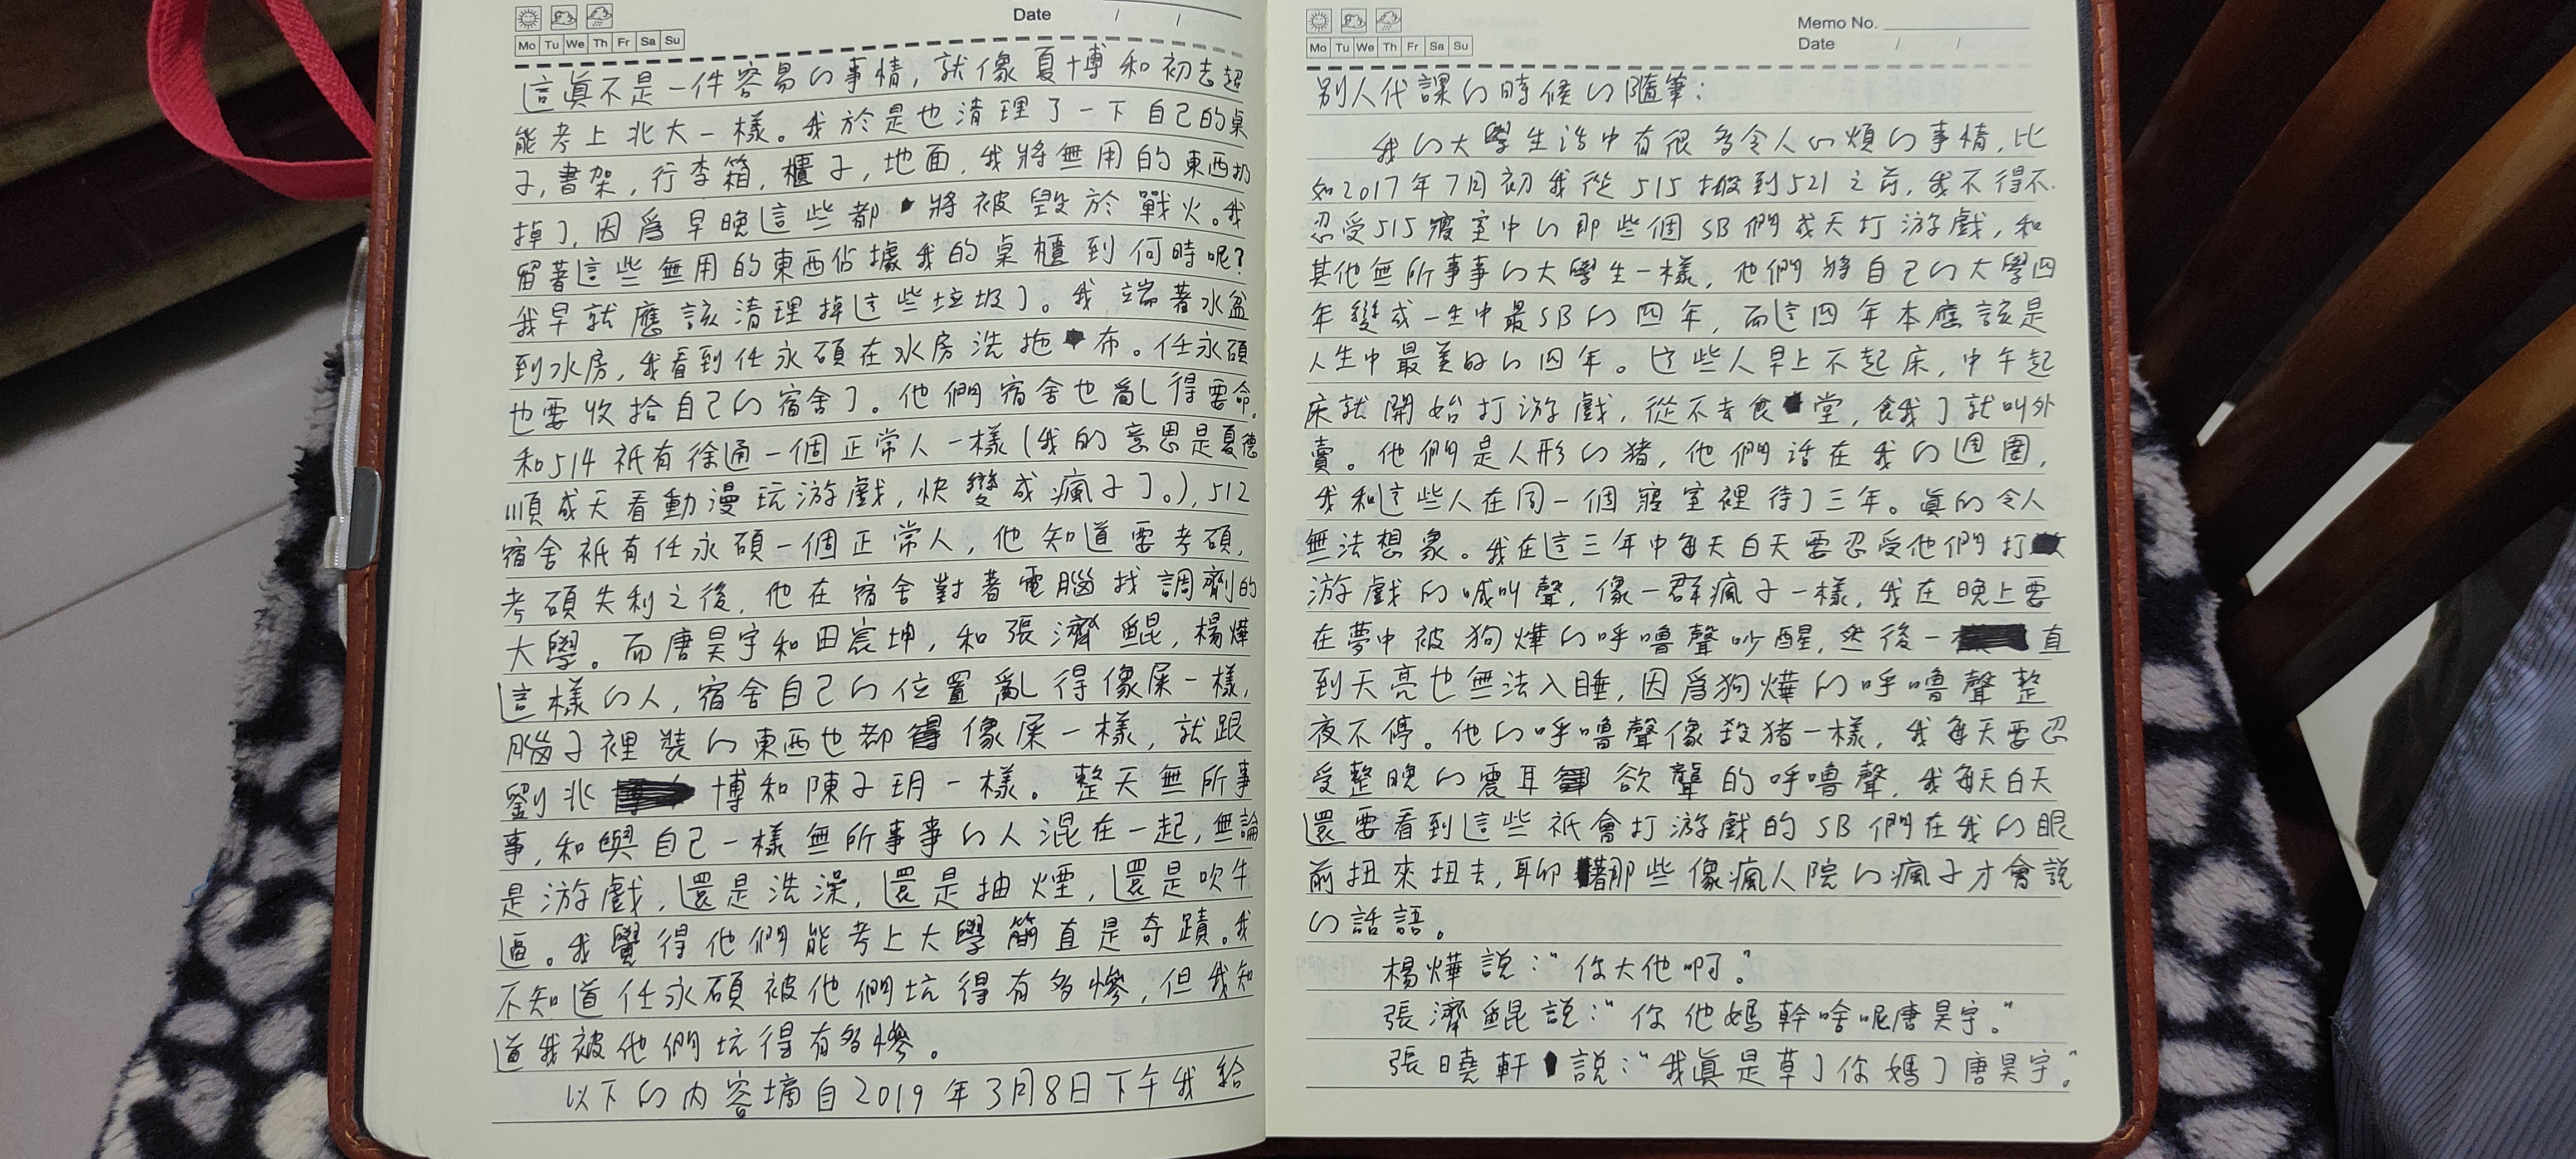 Date / /
Mo Tu We Th Fr Sa Su
這眞不是一件容易の事情，就像夏博和初去超
能考上北大一樣。我於是也清理了一下自己的桌
子，書架，行李箱，櫃子，地面，我將無用的東西扔
掉了，因爲早晚這些都將被毀於戰火。我
留著這些無用的東西佔據我的桌櫃到何時呢？
我早就應該清理掉這些垃圾了。我端著水盆
到水房，我看到任永碩在水房洗拖布。任永碩
也要收拾自己の宿舍了。他們宿舍也亂得要命，
和514祇有徐通一個正常人一樣（我的意思是夏德
順成天看動漫玩游戲，快變成瘋子了。），512
宿舍祇有任永碩一個正常人，他知道要考碩，
考碩失利之後，他在宿舍對著電腦找調劑的
大學。而唐昊宇和田宸坤，和張濟鯤，楊燁
這樣の人，宿舍自己の位置亂得像屎一樣，
腦子裡裝の東西也都像屎一樣，就跟
劉兆博和陳子玥一樣。整天無所事
事，和與自己一樣無所事事の人混在一起，無論
是游戲，還是洗澡，還是抽煙，還是吹牛
逼。我覺得他們能考上大學簡直是奇蹟。我
不知道任永碩被他們坑得有多慘，但我知
道我被他們坑得有多慘。
以下の内容摘自2019年3月8日下午我給
Mo Tu We Th Fr Sa Su
Memo No.
Date / /
別人代課の時候の隨筆：
我の大學生活中有很多令人心煩の事情，比
如2017年7月初我從515搬到521之前，我不得不
忍受515寢室中の那些個SB們成天打游戲，和
其他無所事事の大學生一樣，他們將自己の大學四
年變成一生中最SBの四年，而這四年本應該是
人生中最美好の四年。這些人早上不起床，中午起
床就開始打游戲，從不去食堂，餓了就叫外
賣。他們是人形の猪，他們活在我の週圍，
我和這些人在同一個寢室裡待了三年。眞的令人
無法想象。我在這三年中每天白天要忍受他們打
游戲の喊叫聲，像一群瘋子一樣，我在晚上要
在夢中被狗燁の呼嚕聲吵醒，然後一直
到天亮也無法入睡，因爲狗燁の呼嚕聲整
夜不停。他の呼嚕聲像殺猪一樣，我每天要忍
受整晚の震耳欲聾的呼嚕聲，我每天白天
還要看到這些祇會打游戲的SB們在我の眼
前扭來扭去，聊著那些像瘋人院の瘋子才會說
の話語。
楊燁說：“你大他啊。”
張濟鯤說：“你他媽幹啥呢唐昊宇。”
張曉軒說：“我眞是草了你媽了唐昊宇。”